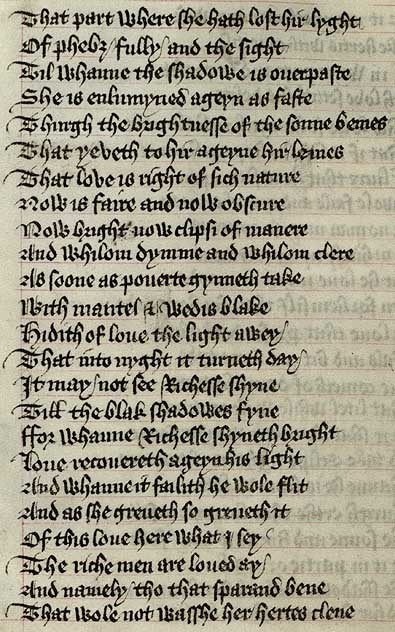 That part where she hath lost hir lyght
Of phebz / fully / and the sight
Til whanne the shadowe is ouerpaste
She is enlumyned ageyn as faste
Thurgh the brightnesse of the sonne bemes
That yeveth to hir ageyne hir lemes
That love is right of sich nature
Now is faire and now obscure
Now bright now clipsi of manere
And whilom dymme and whilom clere
As soone as pouerte gynneth take
With mantel & wedis blake
Hidith of loue the light awey /
That into nyght it turneth day /
It may / not see Richesse shyne
Till the blak shadowes fyne
ffor whanne Richesse shyneth bright
Loue recouereth ageyn his light
And whanne it failith he wole flit
And as she greueth so greueth it
Of this loue here what I sey /
The riche men are loued ay /
And namely / tho that sparand bene
That wole not wasshe her hertes clene